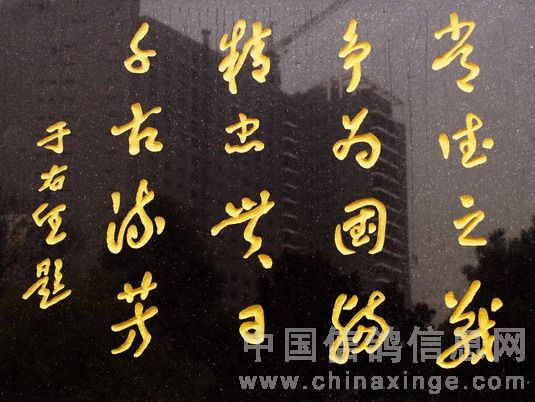 常德之戰
争为國殤
精忠貫日
千古流芳
于右任題
中国信鸽信息网
www.chinaxinge.com